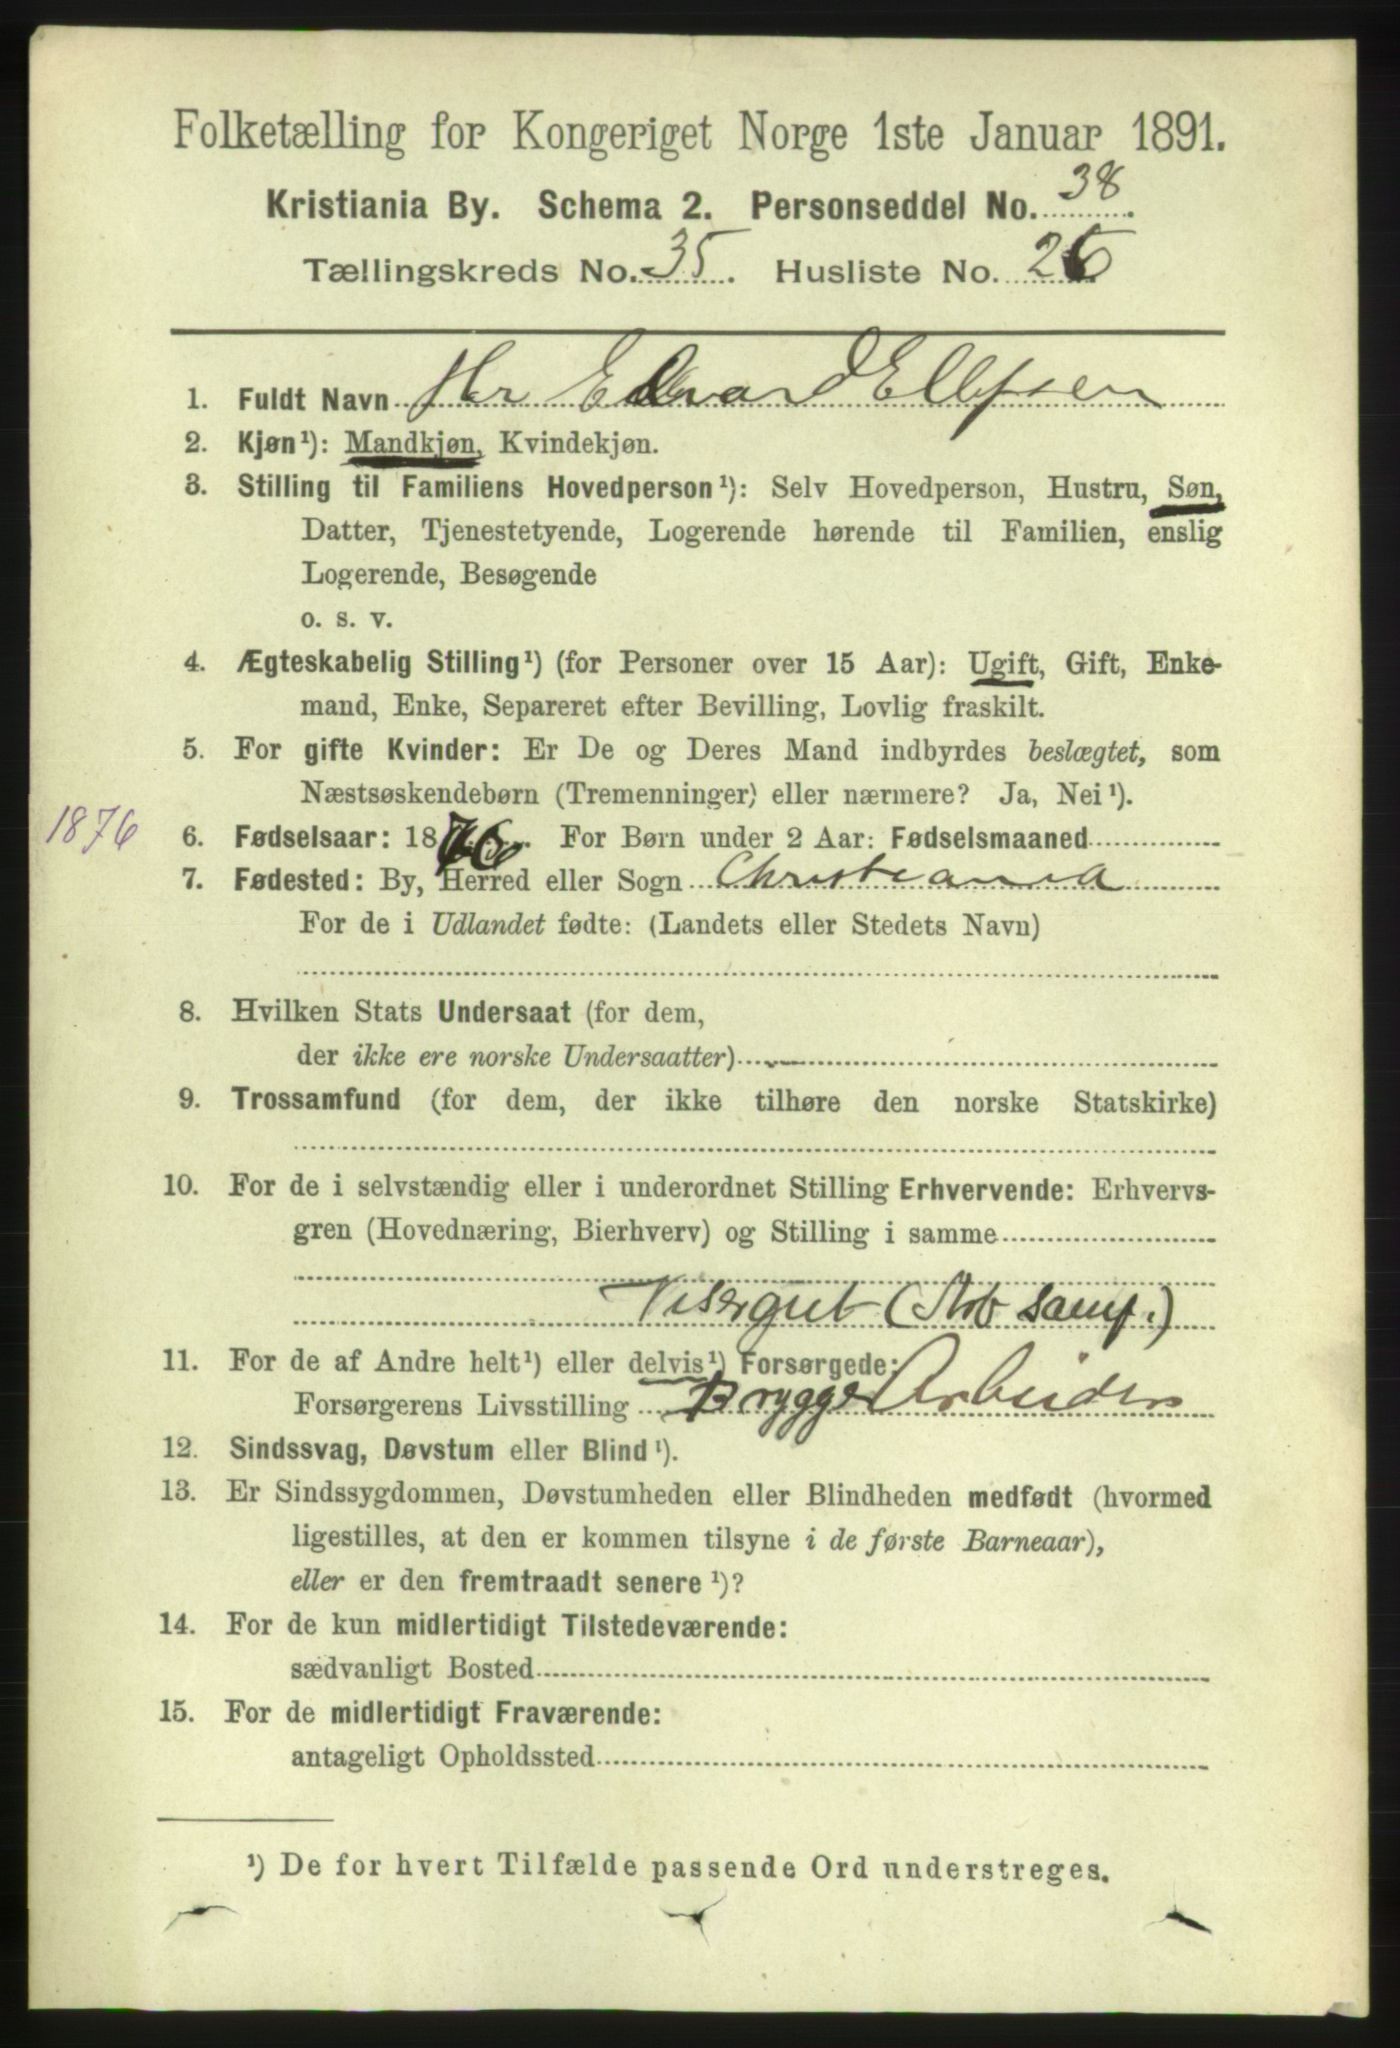 Folketælling for Kongeriget Norge 1ste Januar 1891.
Kristiania By. Schema 2. Personseddel No. 38
Tællingskreds No. 35. Husliste No. 26
1. Fuldt Navn Hr Edvard Ellefsen
2. Kjøn¹): Mandkjøn, Kvindekjøn.
3. Stilling til Familiens Hovedperson¹): Selv Hovedperson, Hustru, Søn,
Datter, Tjenestetyende, Logerende hørende til Familien, enslig
Logerende, Besøgende
o. s. v.
4. Ægteskabelig Stilling¹) (for Personer over 15 Aar): Ugift, Gift, Enke-
mand, Enke, Separeret efter Bevilling, Lovlig fraskilt.
5. For gifte Kvinder: Er De og Deres Mand indbyrdes beslægtet, som
Næstsøskendebørn (Tremenninger) eller nærmere? Ja, Nei¹).
1876
6. Fødselsaar: 1876. For Børn under 2 Aar: Fødselsmaaned
7. Fødested: By, Herred eller Sogn Christiania
For de i Udlandet fødte: (Landets eller Stedets Navn)
8. Hvilken Stats Undersaat (for dem,
der ikke ere norske Undersaatter)
9. Trossamfund (for dem, der ikke tilhøre den norske Statskirke)
10. For de i selvstændig eller i underordnet Stilling Erhvervende: Erhvervs-
gren (Hovednæring, Bierhverv) og Stilling i samme
Visergut (Arb samf.)
11. For de af Andre helt¹) eller delvis¹) Forsørgede:
Forsørgerens Livsstilling Brygge Arbeider
12. Sindssvag, Døvstum eller Blind¹).
13. Er Sindssygdommen, Døvstumheden eller Blindheden medfødt (hvormed
ligestilles, at den er kommen tilsyne i de første Barneaar),
eller er den fremtraadt senere¹)?
14. For de kun midlertidigt Tilstedeværende:
sædvanligt Bosted
15. For de midlertidigt Fraværende:
antageligt Opholdssted
¹) De for hvert Tilfælde passende Ord understreges.